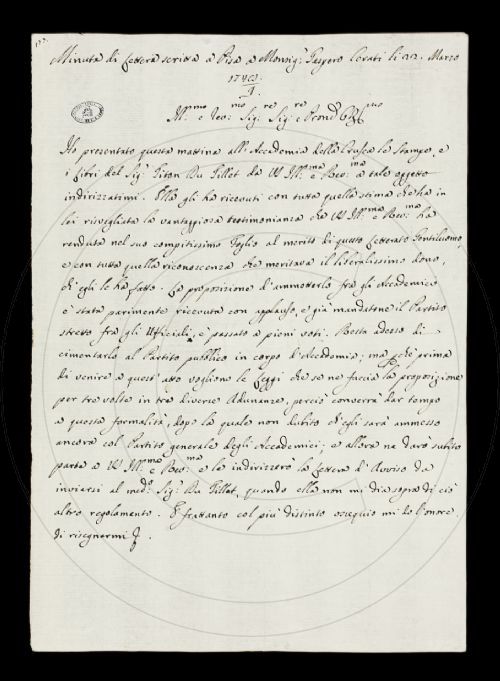 Minuta di Lettera scritta a Pisa a Monsig.r Gaspero Cerati li 22. Marzo
Ill.mo e Rev.mo Sig.re Sig.re e P.ron
Ho presentato questa mattina all'Accademia della Crusca le Stampe, e
i libri del Sig.r Titon Du Tillet da VS Ill.ma e Rev.ma a tale oggetto
indirizzatimi. Ella gli ha ricevuti con tutta quella stima che ha in
lei risvegliata la vantaggiosa testimonianza che VS Ill.ma e Rev.ma ha
renduta nel suo compitissimo foglio al merito di questo Letterato Gentiluomo,
e con tutta quella riconoscenza che meritava il liberalissimo dono,
ch'egli le ha fatto. La proposizione d'ammetterlo fra gli Accademici
è stata parimente ricevuta con applauso, e già mandatone il Partito
stretto fra gli Uffiziali, è passato a pieni voti. Resta adesso di
cimentarlo al Partito pubblico in corpo d'Accademia; ma p.chè prima
di venire a quest'atto vogliono le Leggi che se ne faccia la proposizione
per tre volte in tre diverse Adunanze, perciò converrà dar tempo
a questa formalità, dopo la quale non dubito ch'egli sarà ammesso
ancora col Partito generale degli Accademici; e allora ne darò subito
parte a VS Ill.ma e Rev.ma e le indirizzerò la Lettera d'Avviso da
inviarsi al med.o Sig.r Du Tillet, quando ella non mi dia sopra di ciò
altro regolamento. E frattanto col più distinto ossequio mi do l'onore
di rassegnarmi